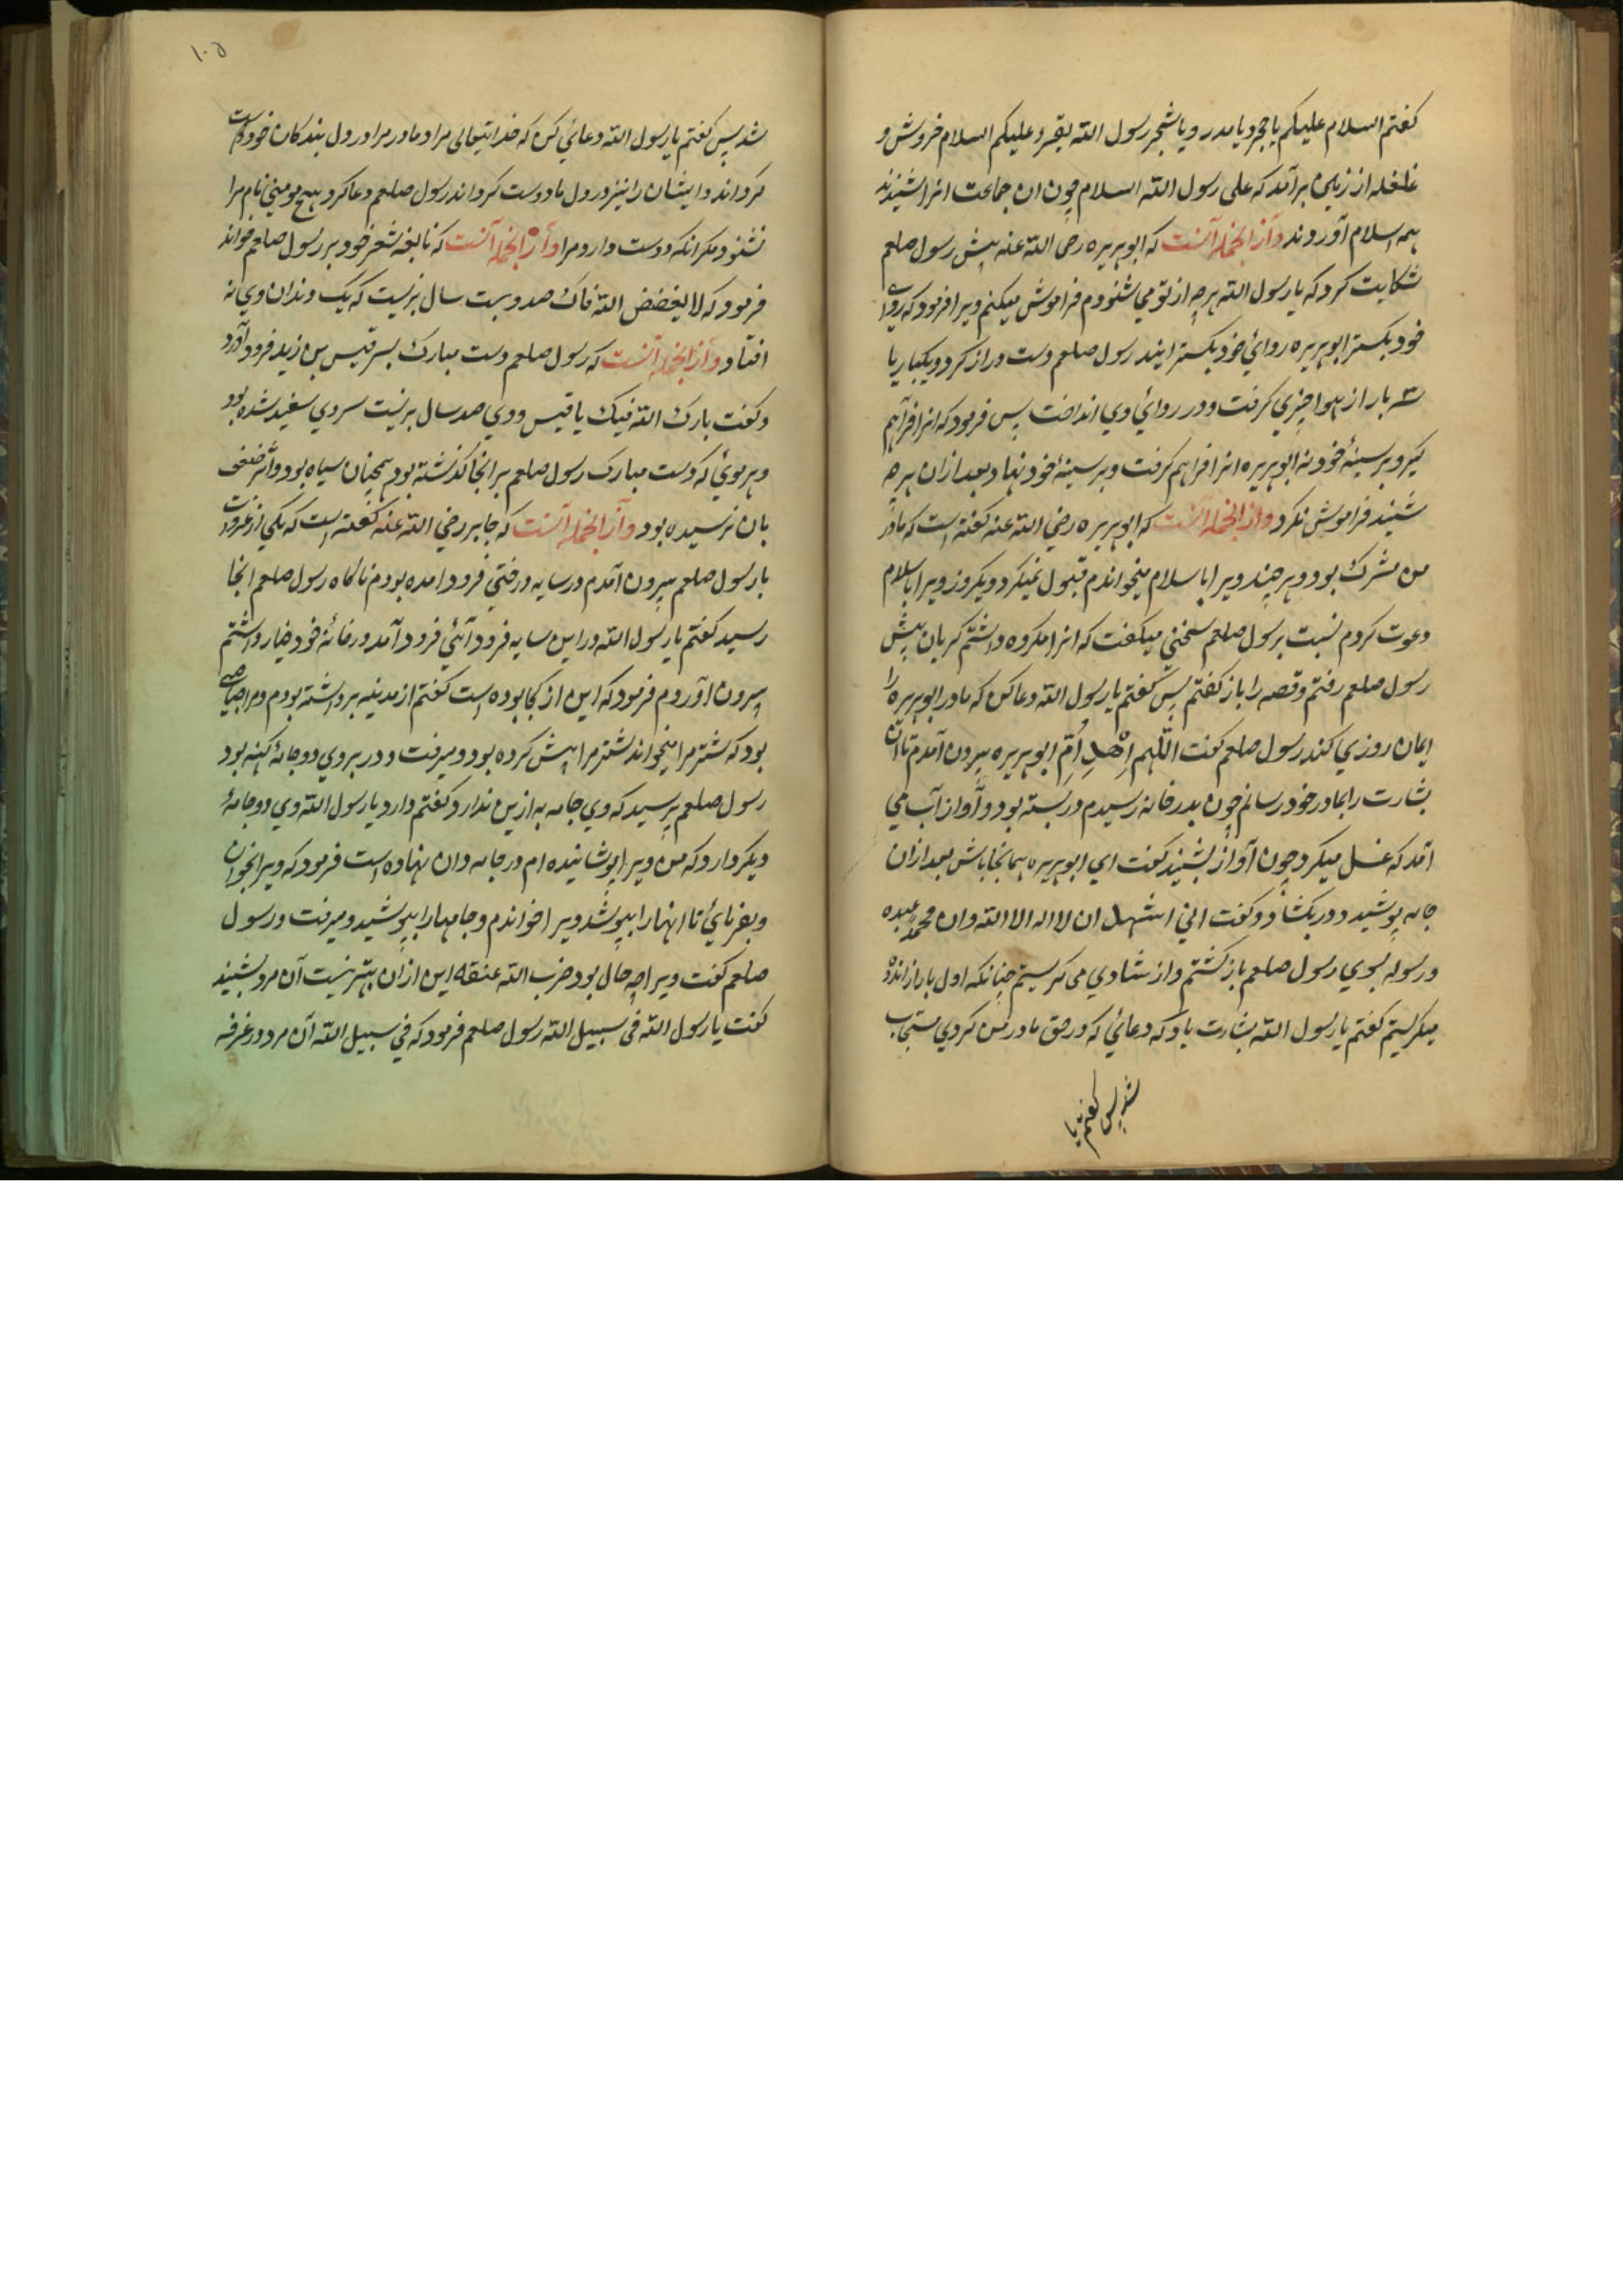 کفتم السلام علیکم یا حجر و یا مدر و یا شجر رسول الله یقرء علیکم السلام خروش و
غلغله از زمین برآمد که علی رسول الله السلام چون ان جماعت انرا شنیدند
همه اسلام آوردند وَاز انجمله آنست که ابوهریره رضی الله عنه پیش رسول صلعم
شکایت کرد که یا رسول الله هرچه از تو می شنوم فراموش میکنم ویرا فرمود که ردای
خود بکستر ابوهریره ردائ خود بکسترانید رسول صلعم دست دراز کرد و یکبار یا
سه بار از هوا چیزی کرفت و در ردائ وی انداخت پس فرمود که انرا فراهم
کیر و بر سینهٔ خود نه ابوهریره انرا فراهم کرفت و بر سینهٔ خود نهاد و بعد ازان هر چه
شنید فراموش نکرد و از انجمله آنست که ابوهریره رضی الله عنه کفته است که مادر
من مشرک بود و هر چند ویرا باسلام میخواندم قبول نمیکرد و یکروز ویرا باسلام
دعوت کردم نسبت برسول صلعم سخنی میکفت که انرا مکروه داشتم کریان پیش
رسول صلعم رفتم و قصه را باز کفتم پس کفتم یا رسول الله دعا کن که مادر ابوهریره را
ایمان روزی کند رسول صلعم کفت اللّهم اِهْدِ اُمّ ابوهریره بیرون آمدم تا ان
بشارت را بمادر خود رسانم چون بدر خانه رسیدم در بسته بود و آواز آب می
آمد که غسل میکرد چون آواز بشنید کفت ای ابوهریره همانجا باش بعد ازان
جامه پوشید و در بکشاد و کفت انی اشهد ان لا اله الا الله و ان محمدا عبده
و رسوله بسوی رسول صلعم بازکشتم و از شادی می کریستم چنانکه اول بار از اندوه
میکریستم کفتم یا رسول الله بشارت باد که دعائی که در حق مادر من کردی مستجاب
شد پس کفتم یا
۱۰۵
شد پس کفتم یا رسول الله دعائی کن که خدایتعالی مرا و مادر مرا در دل بندکان خود دوست
کرداند و ایشان را نیز در دل ما دوست کرداند رسول صلعم دعا کرد هیچ مومنی نام مرا
نشنود مکر انکه دوست دارد مرا وَاَز انجمله آنست که نابغه شعر خود بر رسول صلعم خواند
فرمود که لا یفضض الله فاک صد و بیست سال بزیست که یک دندان وی نه
افتاد و از انجمله آنست که رسول صلعم دست مبارک بسر قیس بن زید فرود آورد
و کفت بارک الله فیک یا قیس و وی صد سال بزیست سر وی سفید شده بود
و هر موئ که دست مبارک رسول صلعم بر انجا کذشته بود همچنان سیاه بود و اثر ضعف
بان نرسیده بود و از انجمله آنست که جابر رضی الله عنه کفته است که در یکی از غزوات
با رسول صلعم بیرون آمدم در سایه درختی فرود امده بودم ناکاه رسول صلعم انجا
رسید کفتم یا رسول الله در این سایه فرود آئی فرود آمد در خانهٔ خود خیار داشتم
بیرون آوردم فرمود که این از کجا بوده است کفتم از مدینه برداشته بودم و مرا صاحبی
بود که شتر مرا میچراند شتر مرا پیش کرده بود و میرفت و در بر وی دو جامهٔ کهنه بود
رسول صلعم پرسید که وی جامه به ازین ندارد کفتم دارد یا رسول الله وی دو جامهٔ
دیکر دارد که من ویرا پوشانیده ام در جامه دان نهاده است فرمود که ویرا بخوان
و بفرمائ تا انها را بپوشد ویرا خواندم و جامها را بپوشید و میرفت و رسول
صلعم کفت ویرا چه حال بود ضرب الله عنقه این از ان بهتر نیست آن مرد بشنید
کفت یا رسول الله فی سبیل الله رسول صلعم فرمود که فی سبیل الله آن مرد در غزفه